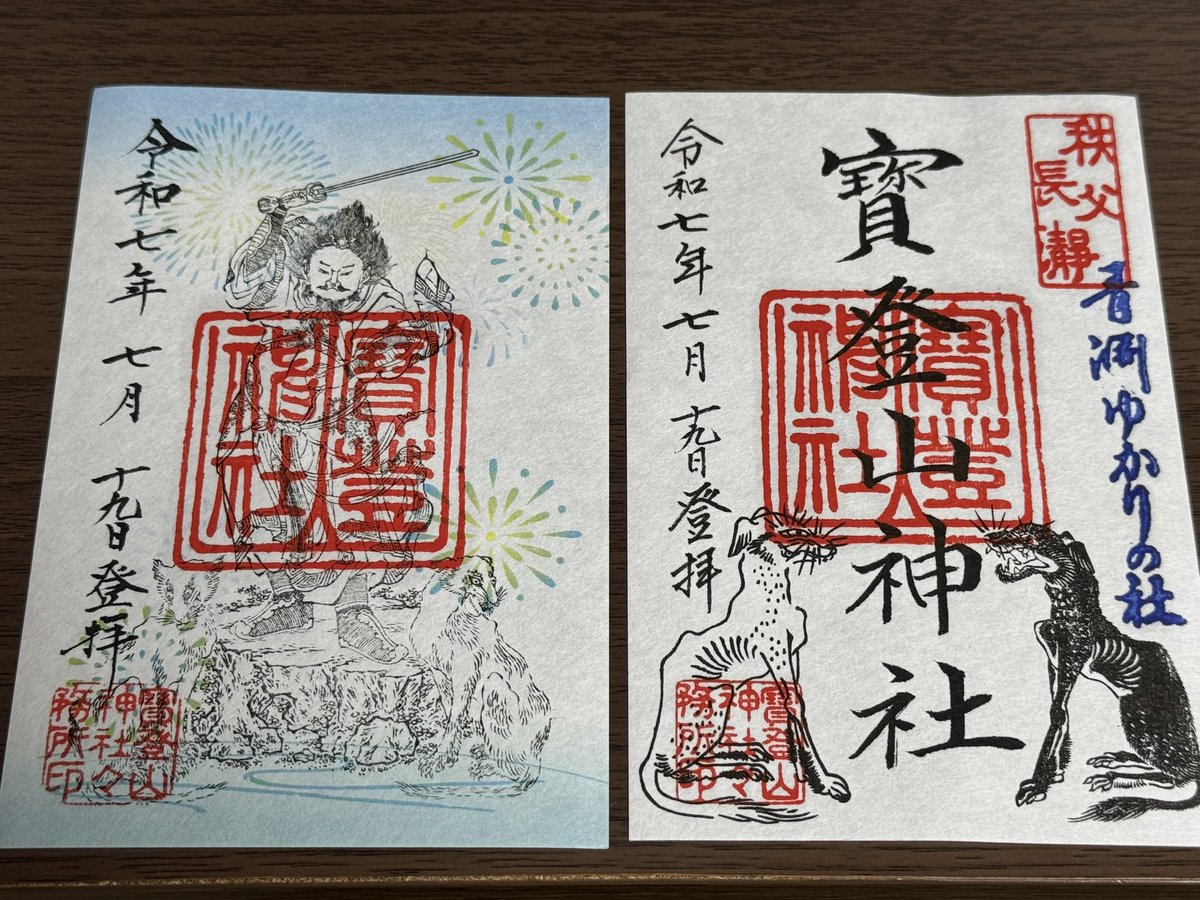 令和七年 七月 十九日 登拝
寳登山
神社
寳登山
神社々
務所印
秩父
長瀞
青淵ゆかりの社
寳登山神社
寳登山
神社
令和七年 七月 十九日 登拝
寳登山
神社々
務所印